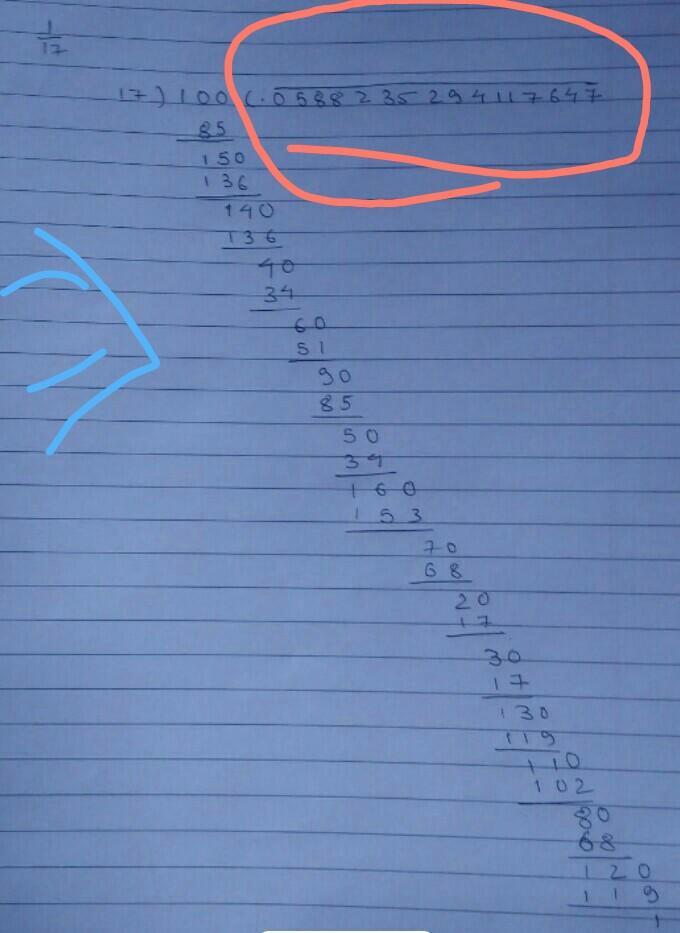 1
17
17) 100 (.0588235294117647
85
150
136
140
136
40
34
60
51
90
85
50
34
160
153
70
68
20
17
30
17
130
119
110
102
80
68
120
119
1